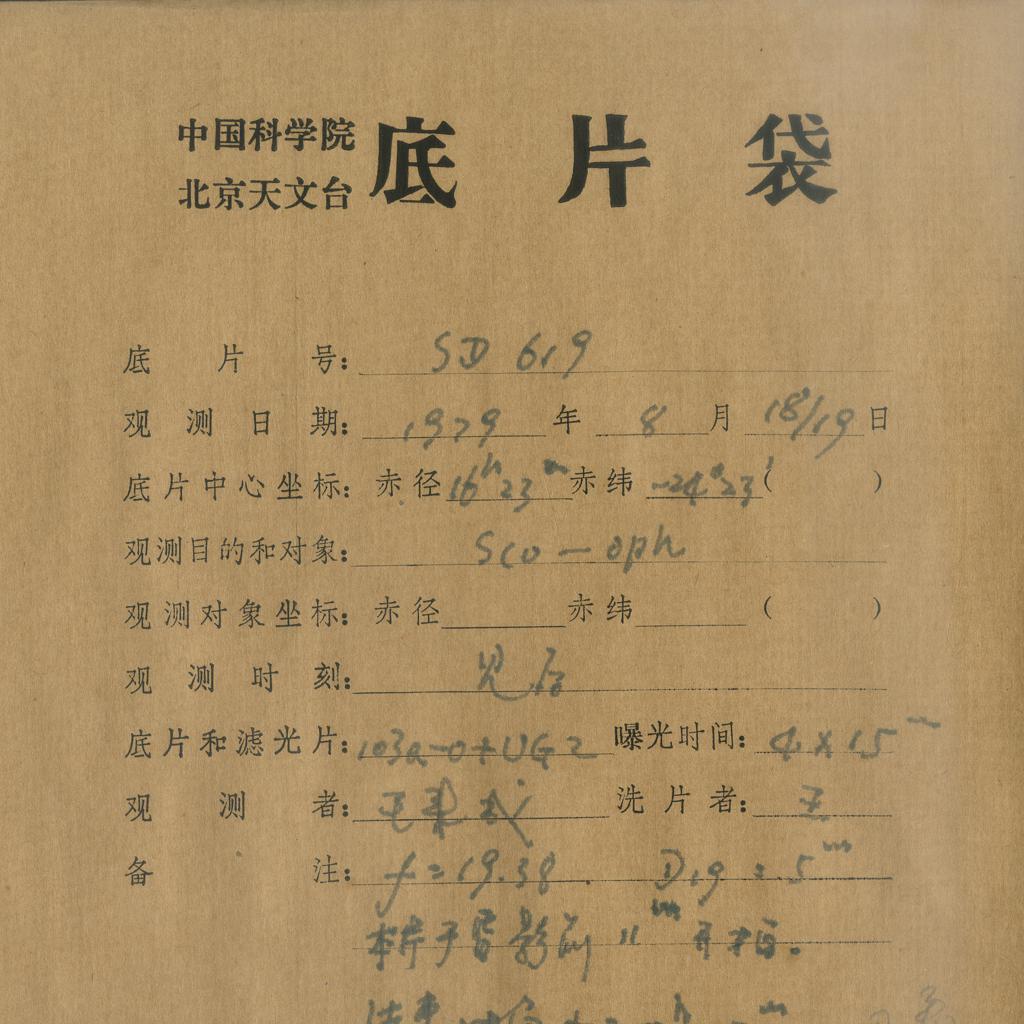 中国科学院
北京天文台
底片袋
底片号: SD 619
观测日期: 1979 年 8 月 18/19 日
底片中心坐标: 赤径 16h23m 赤纬 -24°23′ ( )
观测目的和对象: Sco-oph
观测对象坐标: 赤径 赤纬 ( )
观测时刻: 见后
底片和滤光片: 103a-O+UG2 曝光时间: 4×15m
观测者: 王 洗片者: 王
备注: f=19.38. D19 : 5m
本片于 影前 11m 开拍.